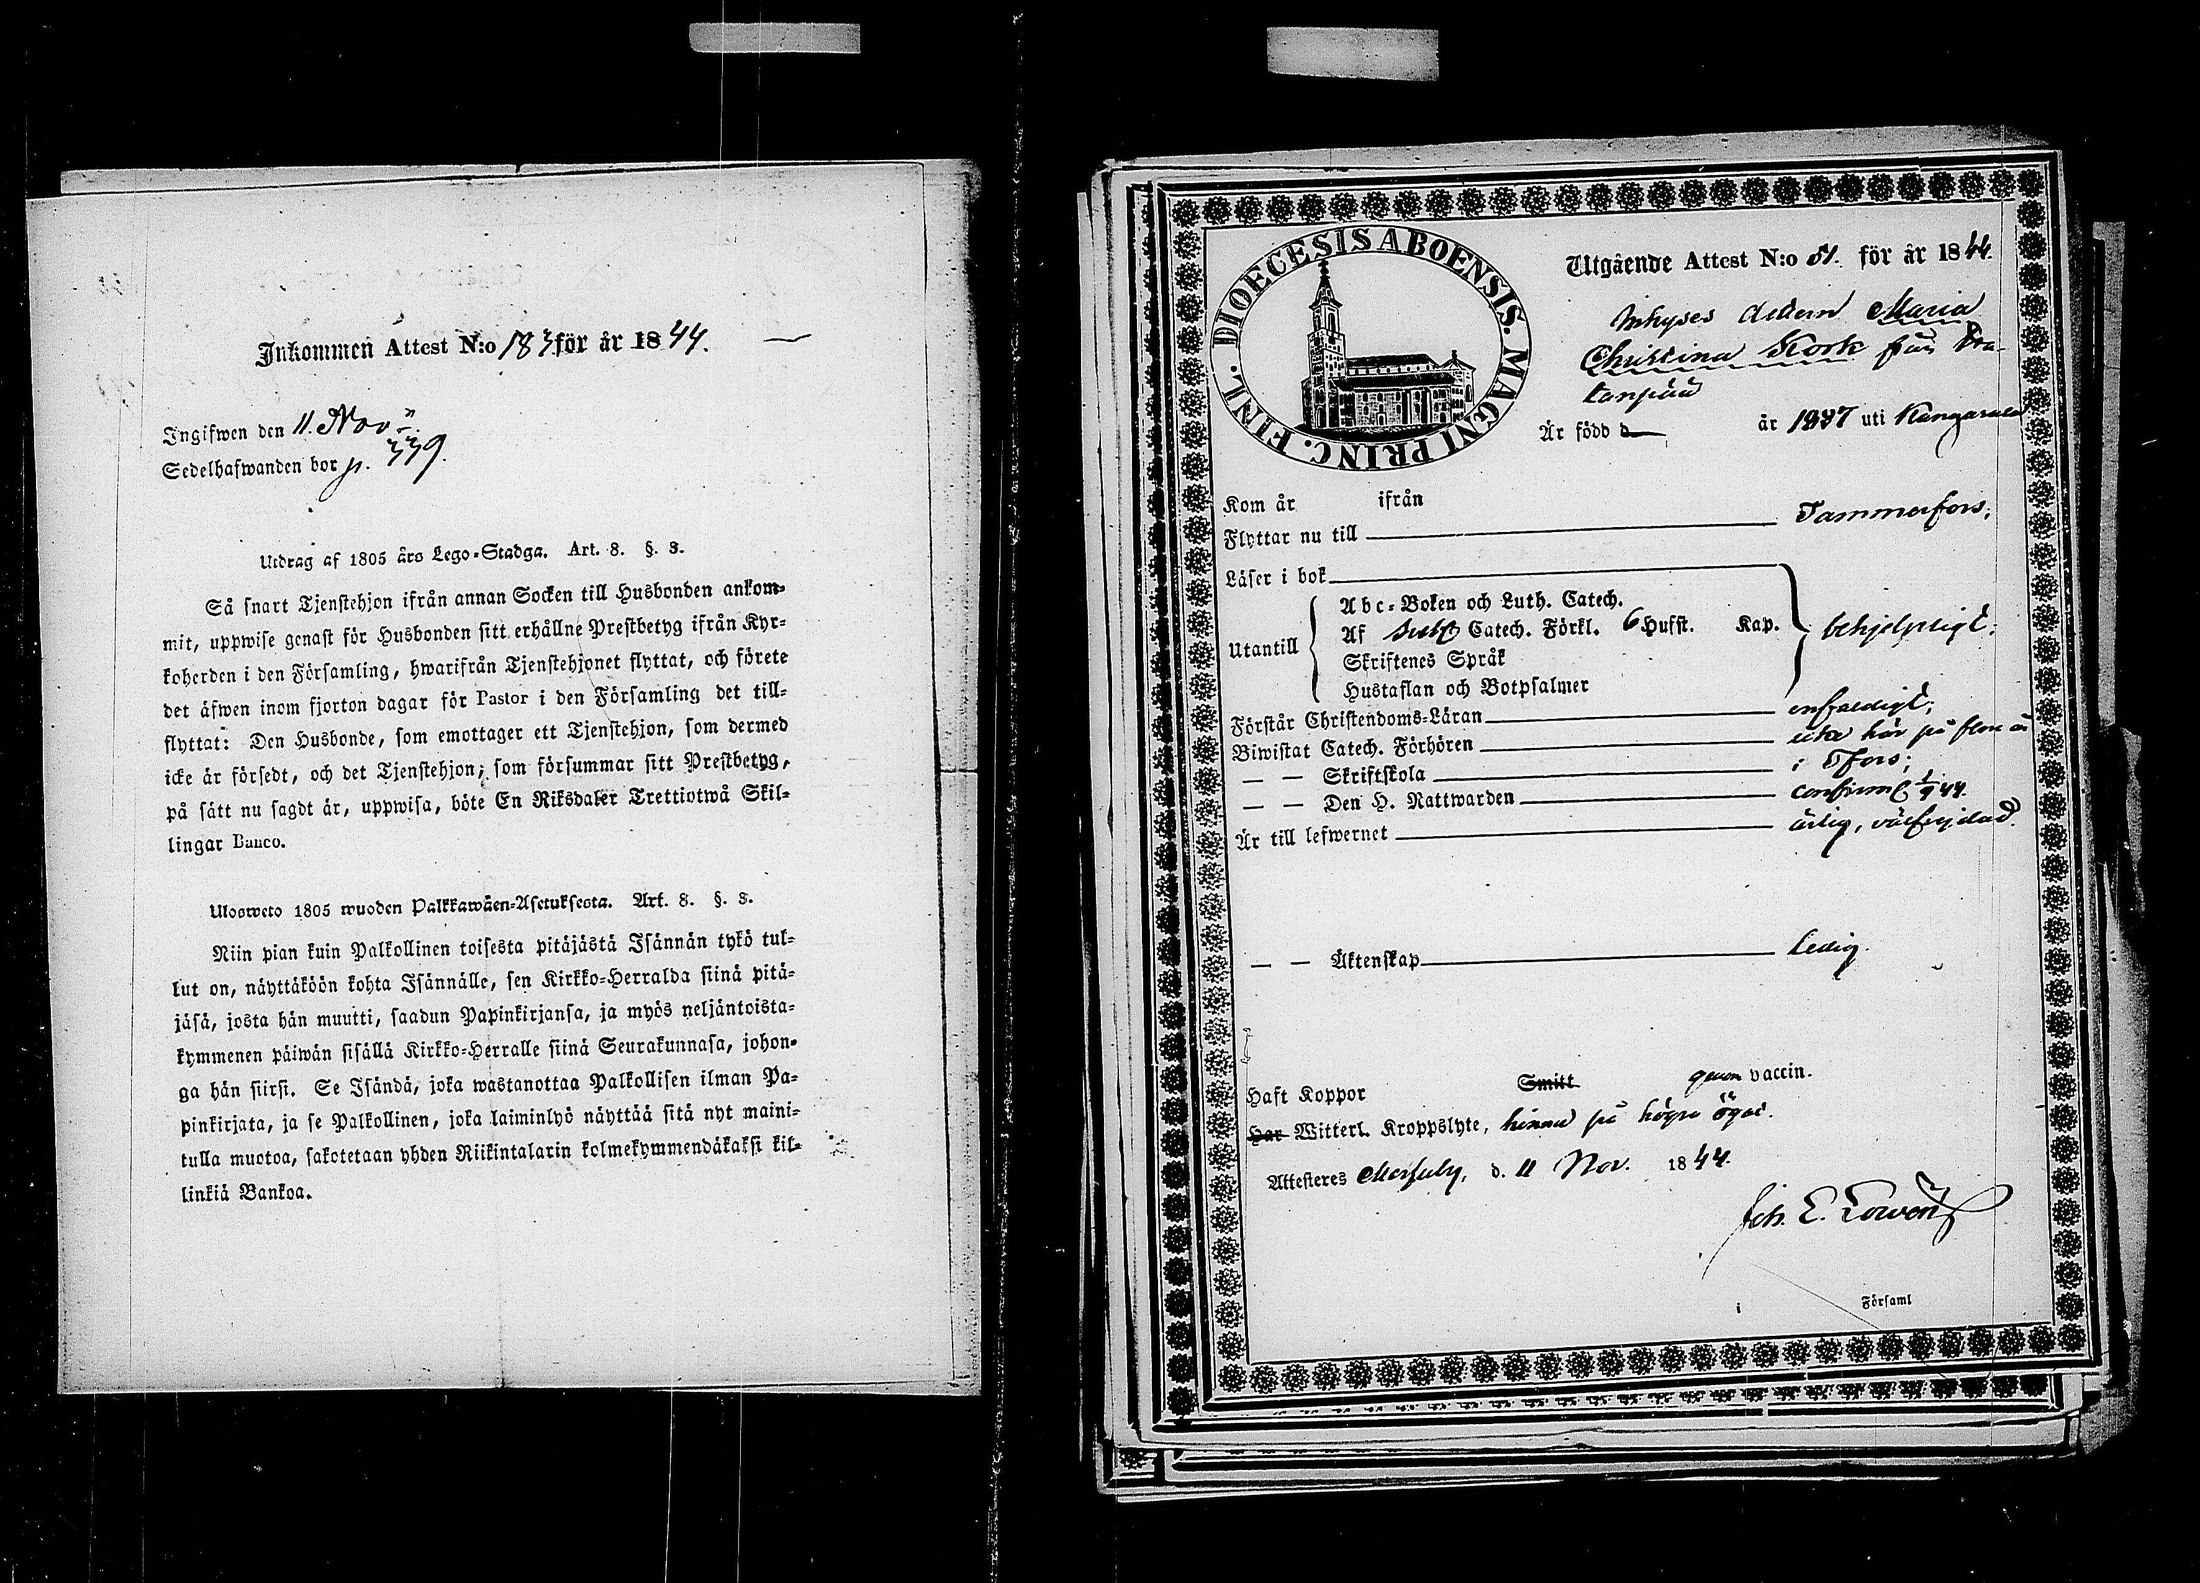 Inkommen Attest N:o 183 för år 1844.
Ingifwen den 11. Nov:
Sedelhafwanden bor p. 339.
Utdrag af 1805 års Lego-Stadga. Art. 8. §. 3.
Så snart Tjenstehjon ifrån annan Socken till Husbonden ankom-
mit, uppwise genast för Husbonden sitt erhållne Prestbetyg ifrån Kyr-
koherden i den Församling, hwarifrån Tjenstehjonet flyttat, och förete
det äfwen inom fjorton dagar för Pastor i den Församling det till-
flyttat: Den Husbonde, som emottager ett Tjenstehjon, som dermed
icke är försedt, och det Tjenstehjon, som försummar sitt Prestbetyg,
på sätt nu sagdt är, uppwisa, böte En Riksdaler Trettiotwå Skil-
lingar Banco.
Ulosweto 1805 wuoden Palkkawäen-Asetuksesta. Art. 8. §. 3.
Niin pian kuin Palkollinen toisesta pitäjästä Isännän tykö tul-
lut on, näyttäköön kohta Isännälle, sen Kirkko-Herralda siinä pitä-
jäsä, josta hän muutti, saadun Papinkirjansa, ja myös neljäntoista-
kymmenen päiwän sisällä Kirkko-Herralle siinä Seurakunnasa, johon-
ga hän siirsi. Se Isändä, joka wastanottaa Palkollisen ilman Pa-
pinkirjata, ja se Palkollinen, joka laiminlyö näyttää sitä nyt maini-
tulla muotoa, sakotetaan yhden Riikintalarin kolmekymmendäkaksi kil-
linkiä Bankoa.
DIOECESIS ABOENSIS. MAGNI PRINC. FINL.
Utgående Attest N:o 51. för år 1844.
Inhyses Maria
Christina från
Är född d — år 1827 uti Kangasala
Kom år ifrån
Flyttar nu till Tammerfors;
Läser i bok
Utantill
Abc-Boken och Luth. Catech.
Af Catech. Förkl. 6 Hufst. Kap.
Skriftenes Språk
Hustaflan och Botpsalmer
behjelpligt;
Förstår Christendoms-Läran enfaldigt;
Biwistat Catech. Förhören icke här på flere år
— — Skriftskola i Tfors;
— — Den H. Nattwarden 44.
Är till lefwernet ärlig, välfrejdad.
— — Äktenskap ledig.
Haft Koppor Smitt genom vaccin.
Har Witterl. Kroppslyte, hinna på högra ögat.
Attesteres d. 11 Nov. 1844.
Joh. E.
i Församl